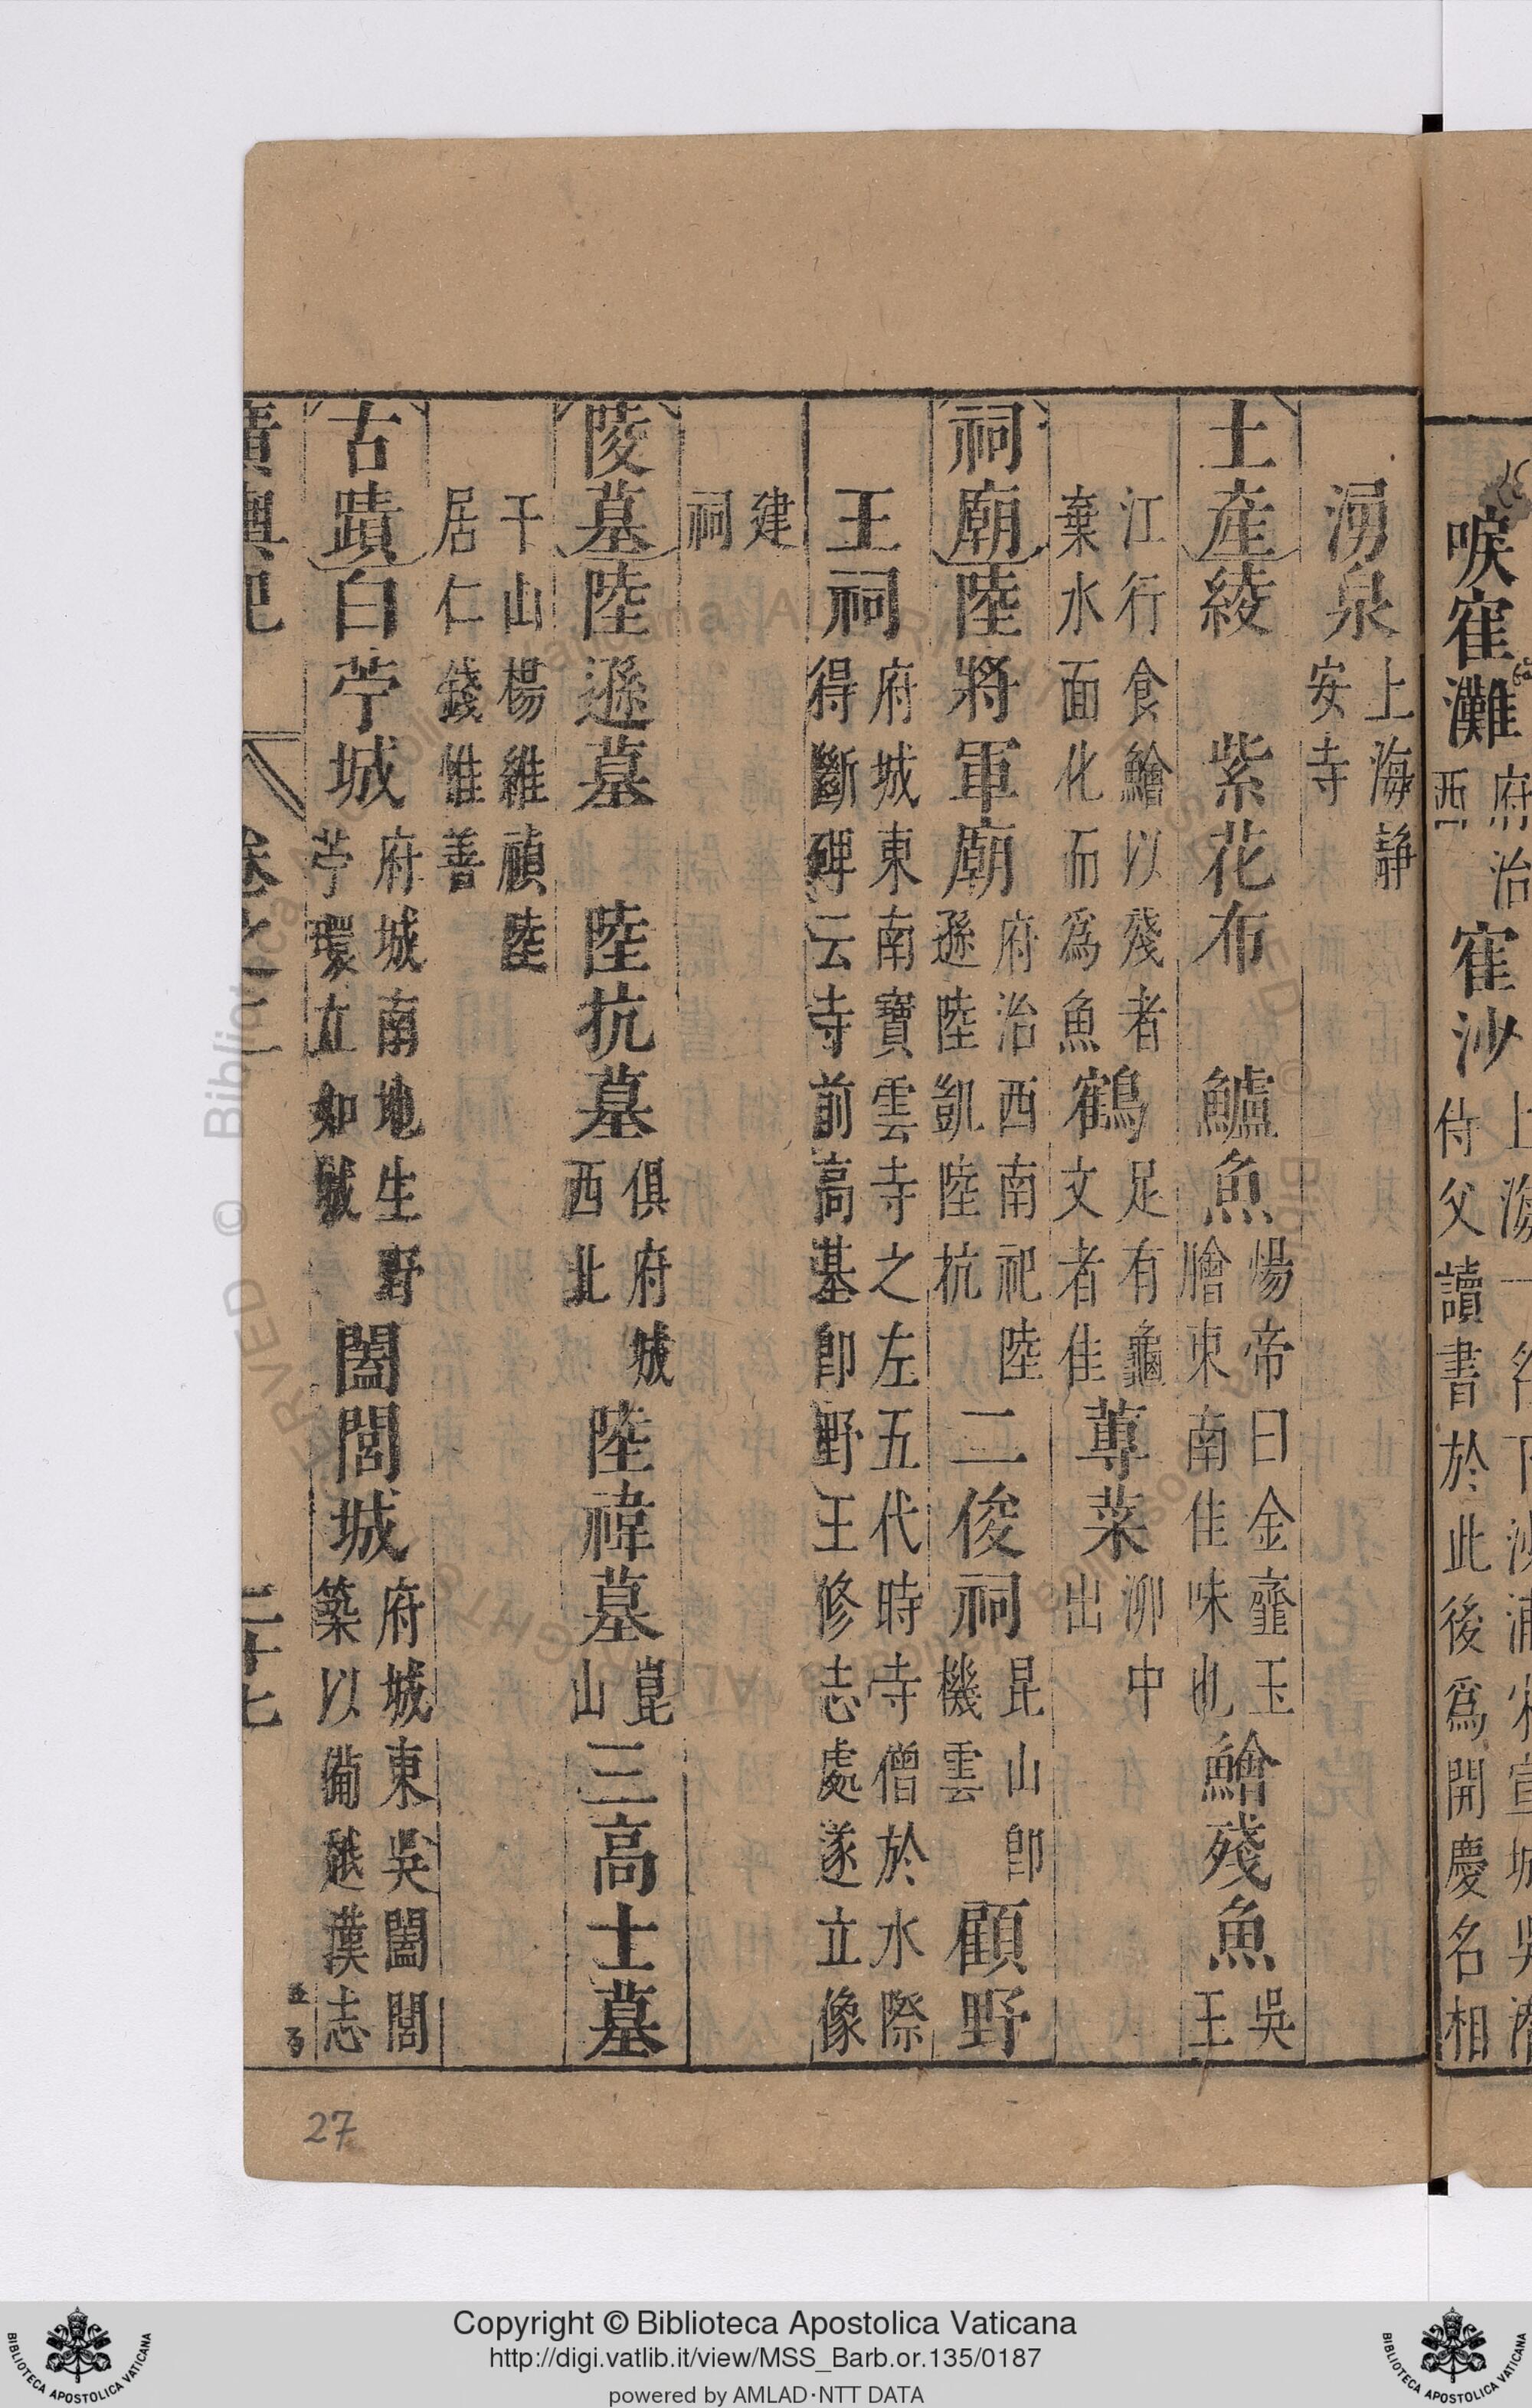 唳寉灘府治西寉沙
侍父讀書於此後爲開慶名相
湧泉上海靜安寺
土產綾 紫花布 鱸魚煬帝曰金虀玉膾東南佳味也鱠殘魚吳王
江行食鱠以殘者棄水面化而爲魚鶴足有龜文者佳蓴菜泖中出
祠廟陸將軍廟府治西南祀陸遜陸凱陸抗二俊祠昆山卽機雲顧野
王祠府城東南寶雲寺之左五代時寺僧於水際得斷碑云寺前高基卽野王修志處遂立像
建祠
陵墓陸遜墓 陸抗墓俱府城西北陸禕墓崑山三高士墓
干山楊維禎陸居仁錢惟善
古蹟白苧城府城南地生野苧環立如城闔閭城府城東吳闔閭築以備越漢志
廣輿記 卷之二 二十七
27
Copyright © Biblioteca Apostolica Vaticana
http://digi.vatlib.it/view/MSS_Barb.or.135/0187
powered by AMLAD·NTT DATA
BIBLIOTECA APOSTOLICA VATICANA
BIBLIOTECA APOSTOLICA VATICANA